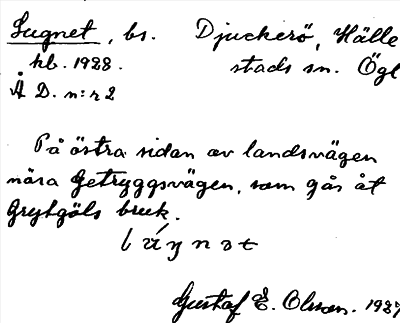 Lugnet, bs. Djuckerö, Hälle
kb. 1928. stads sn. Ögl
Å D. n:r 2
På östra sidan av landsvägen
nära Getryggsvägen, som går åt
Grytgöls bruk.
Gustaf E. Olsson.